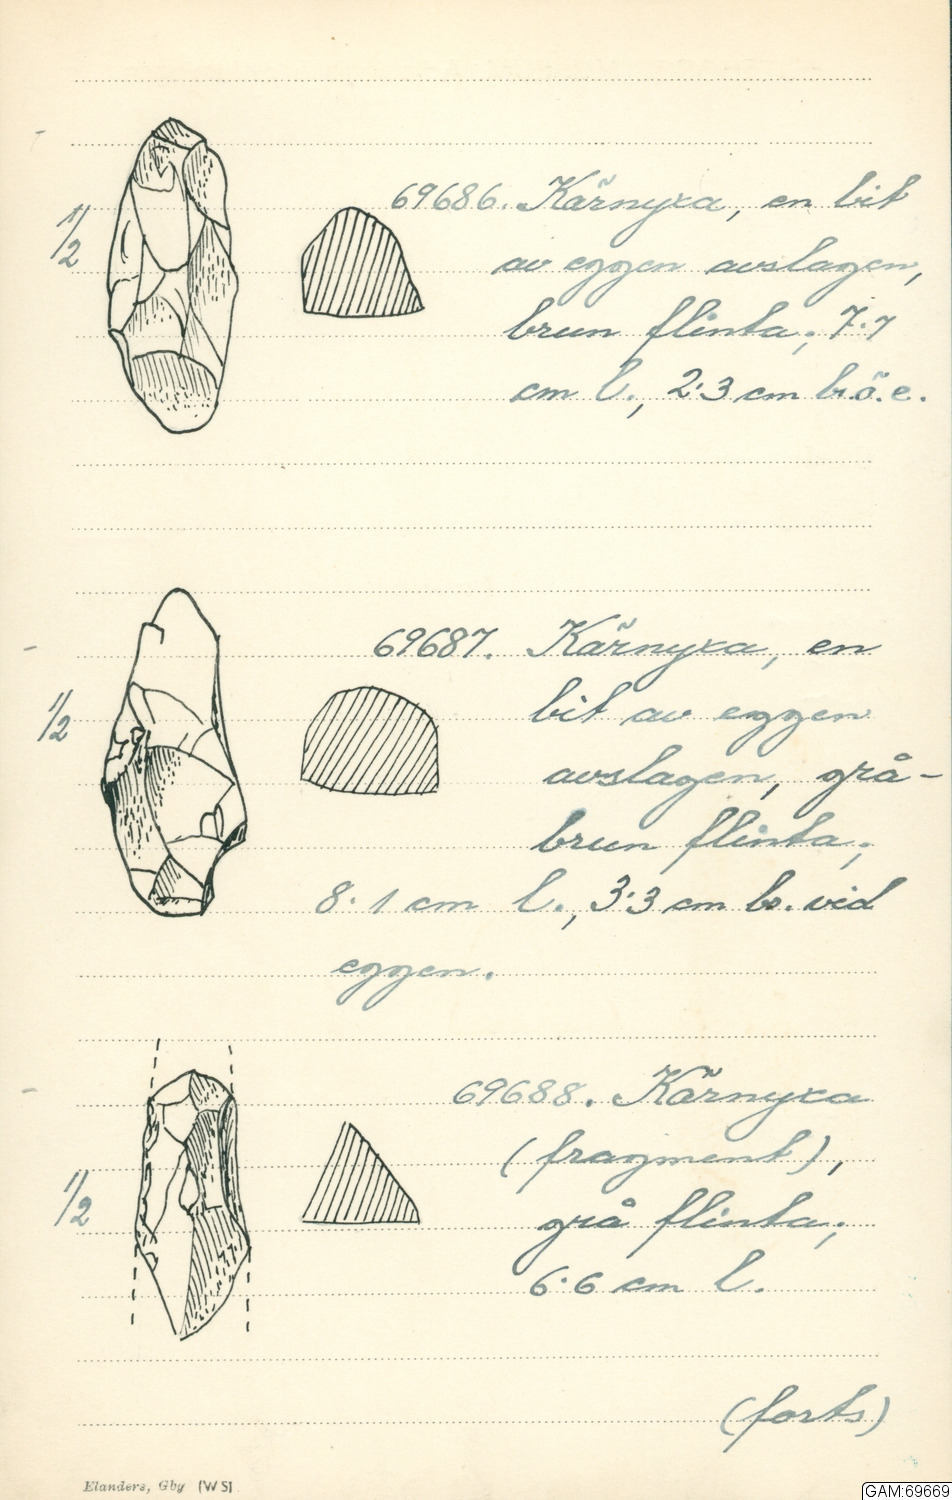 1/2
69686. Kärnyxa, en bit
av eggen avslagen,
brun flinta; 7.7
cm l., 2.3 cm br.ö.e.
1/2
69687. Kärnyxa, en
bit av eggen
avslagen, grå-
brun flinta;
8.1 cm l., 3.3 cm br. vid
eggen.
1/2
69688. Kärnyxa
(fragment),
grå flinta;
6.6 cm l.
(forts)
Elanders, Gby (WS)
GAM:69669